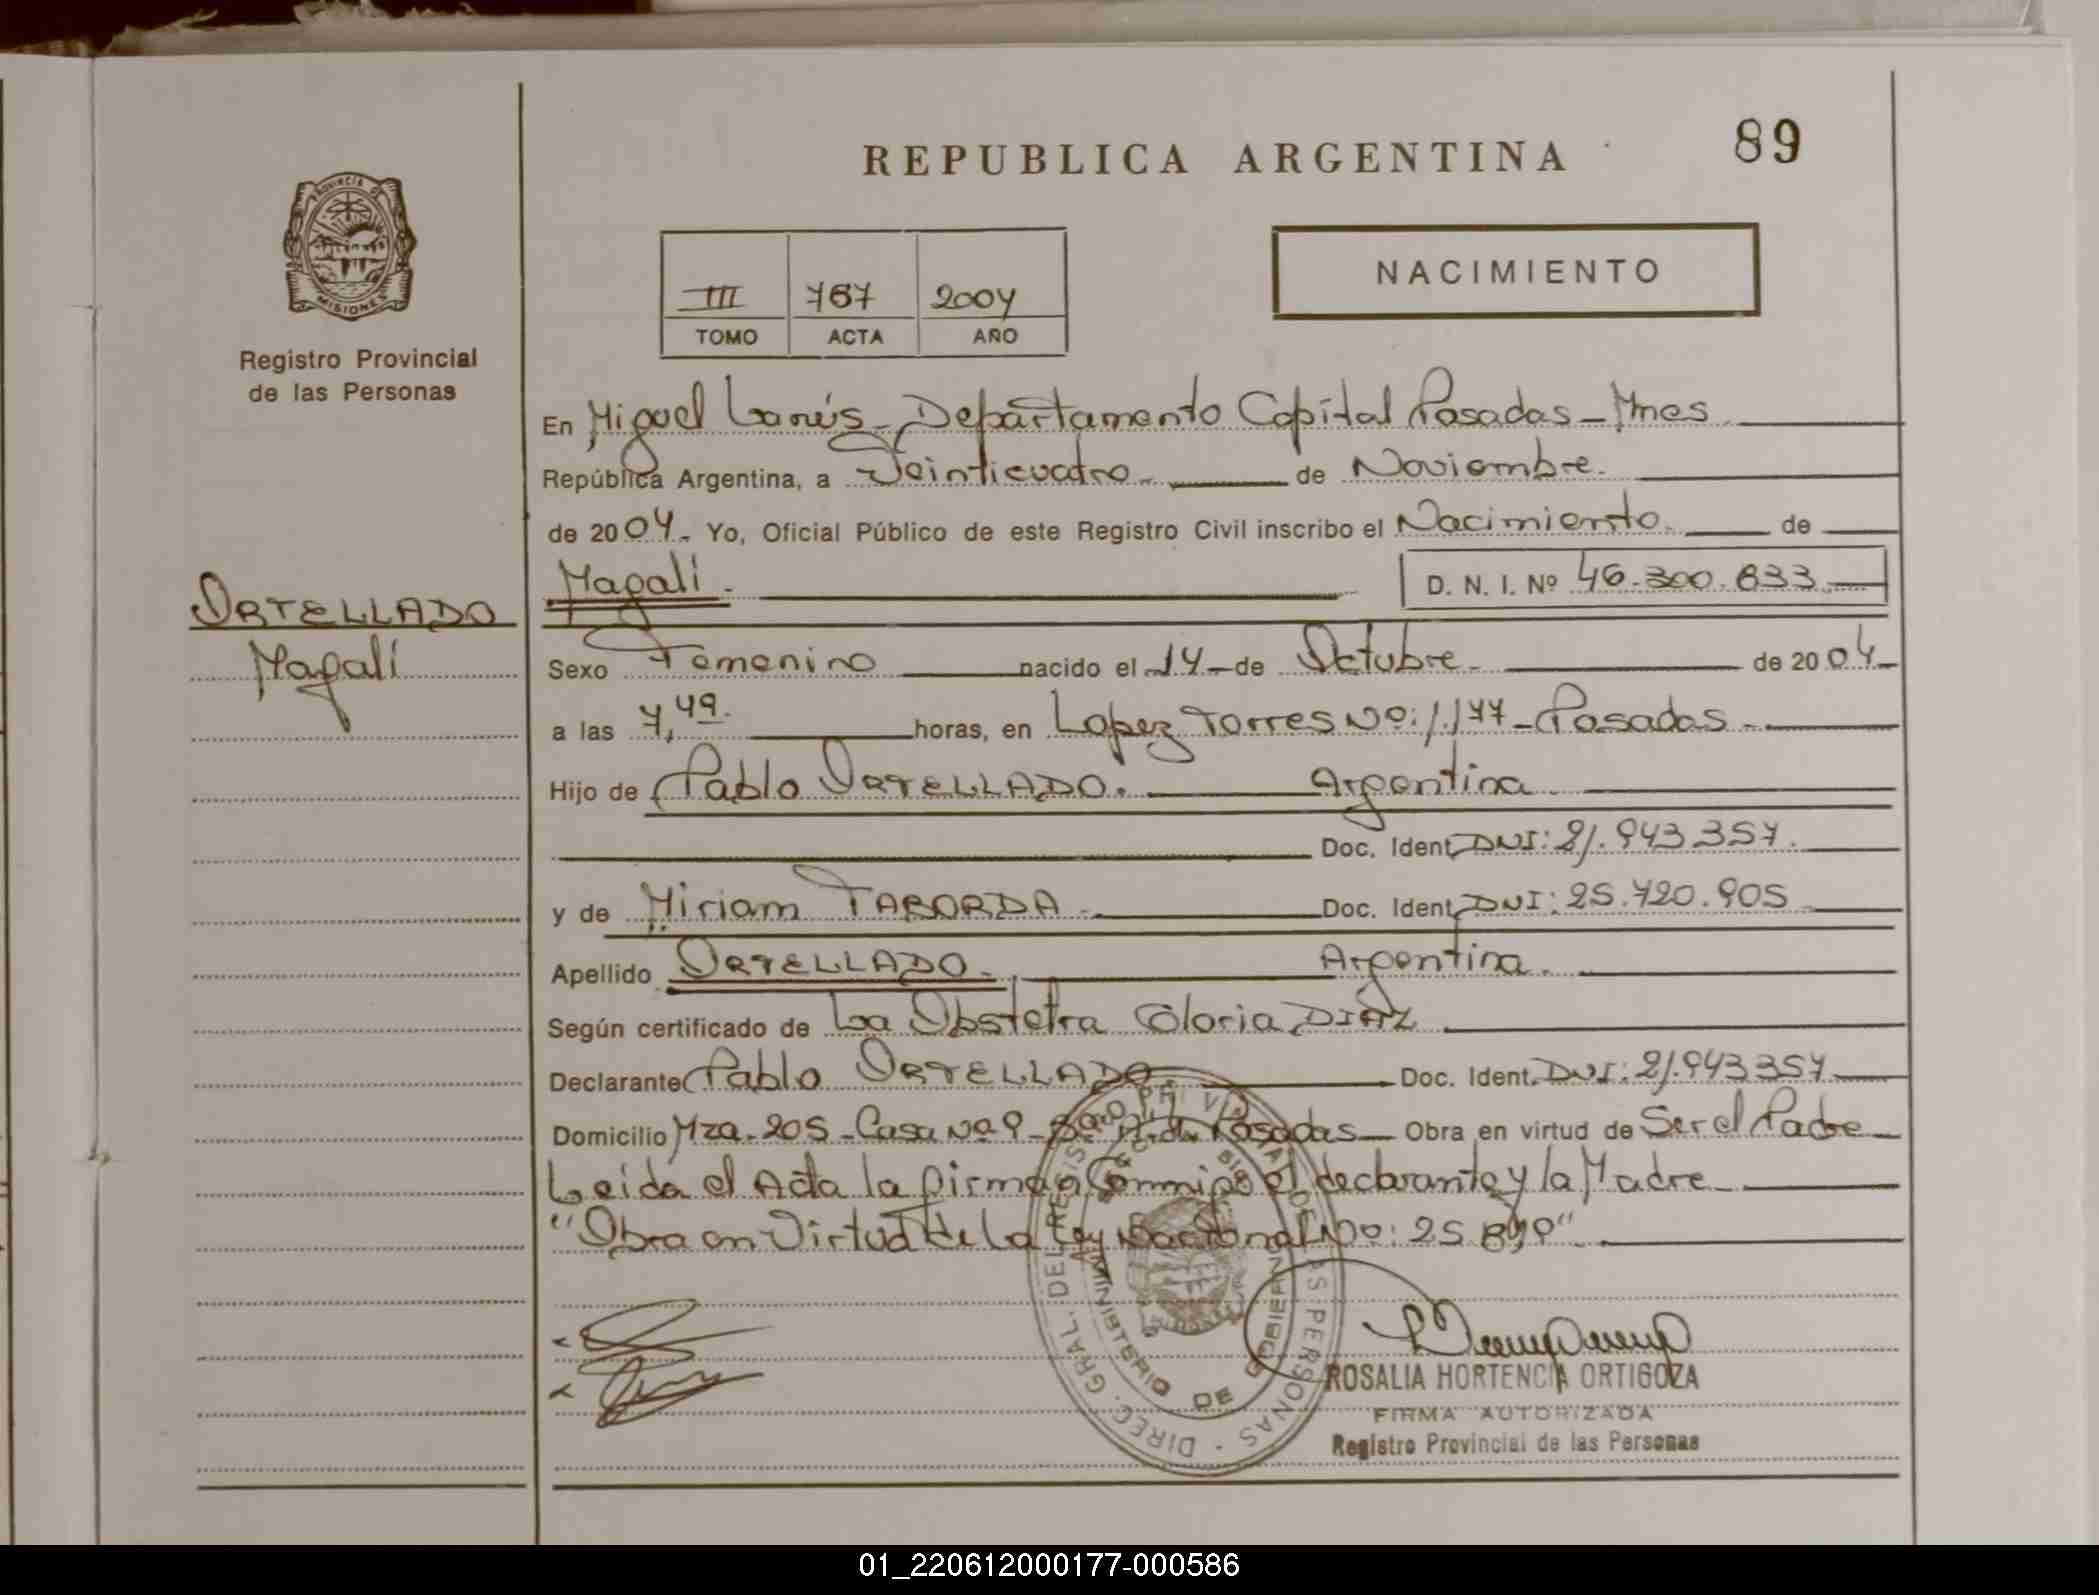 REPUBLICA ARGENTINA
89
PROVINCIA DE
MISIONES
Registro Provincial
de las Personas
NACIMIENTO
III 767 2004
TOMO ACTA AÑO
En Miguel Lanús - Departamento Capital Posadas - Mnes
República Argentina, a Veinticuatro.- de Noviembre.
de 2004.- Yo, Oficial Público de este Registro Civil inscribo el Nacimiento. de
Magali.
D. N. I. Nº 46.300.633
ORTELLADO
Magali
Sexo Femenino nacido el 14 - de Octubre - de 2004
a las 7,49. horas, en Lopez Torres Nº: 1.177 - Posadas -
Hijo de Pablo ORTELLADO. Argentina
Doc. Ident. DNI: 21.943.357.
y de Miriam TABORDA - Doc. Ident. DNI: 25.720.905
Apellido ORTELLADO. Argentina.
Según certificado de La Obstetra Gloria DIAZ
Declarante Pablo ORTELLADO Doc. Ident. DNI: 21.943357
Domicilio Mza. 205 - Casa Nº 9 - Posadas - Obra en virtud de Ser el Padre
Leida el Acta la firman Conmigo el declarante y la Madre
"Obra en Virtud de La Ley Nacional Nº: 25"
DIREC. GRAL. DEL REGISTRO PROVINCIAL DE LAS PERSONAS
MINISTERIO DE GOBIERNO
ROSALIA HORTENCIA ORTIGOZA
FIRMA AUTORIZADA
Registro Provincial de las Personas
01_220612000177-000586